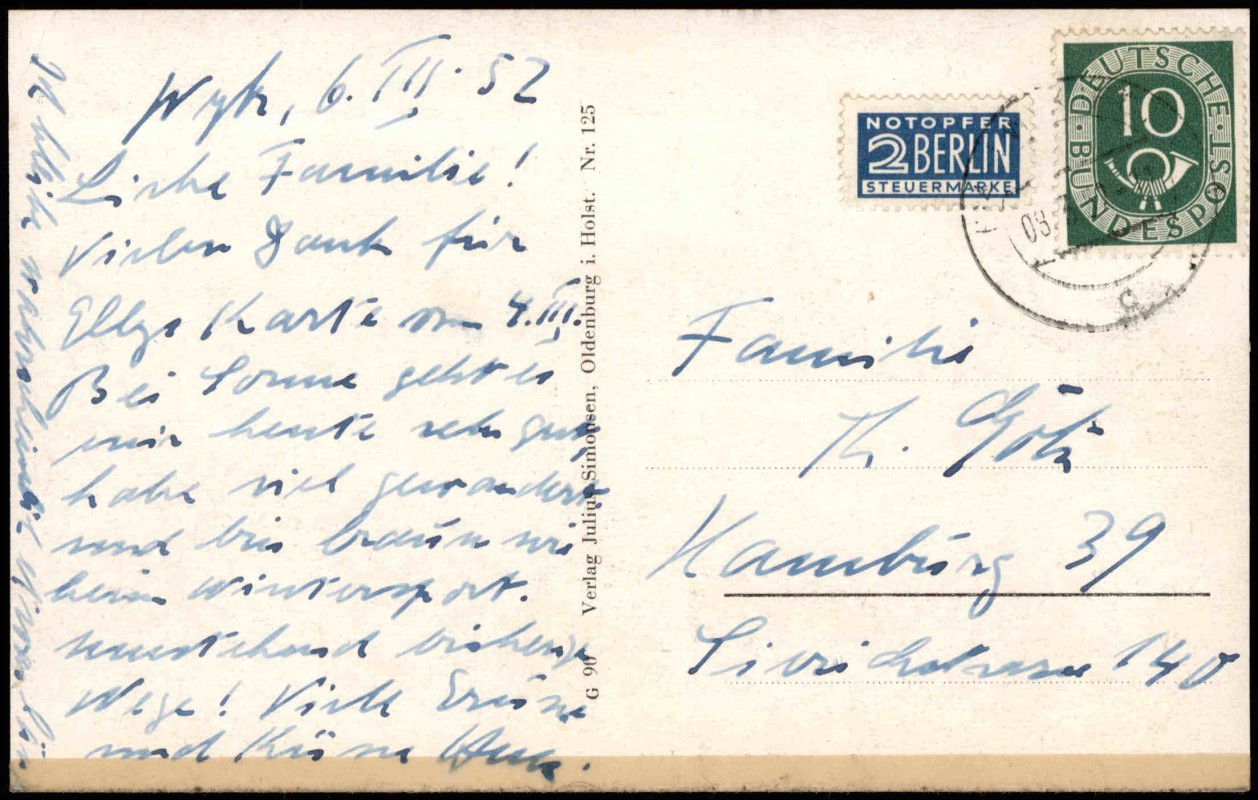 Wyk, 6. III. 52
Liebe Familie!
Vielen Dank für
Ellys Karte vom 4. III.
Bei Sonne geht es
mir heute sehr gut,
habe viel gewandert
und bin braun wie
beim Wintersport.
umstehend bisherige
Wege! Viele Grüsse
und Küsse
Ich bleibe wahrscheinlich
G 90 Verlag Julius Simonsen, Oldenburg i. Holst. Nr. 125
NOTOPFER
2 BERLIN
STEUERMARKE
DEUTSCHE
10
BUNDESPOST
Familie
K. Götz
Hamburg 39
Sierichstrasse 140